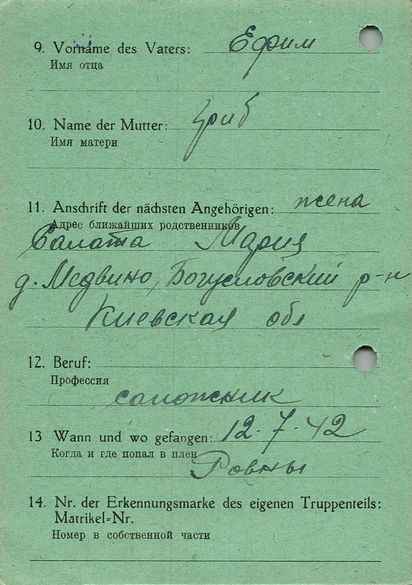 9. Vorname des Vaters: Ефим
Имя отца
10. Name der Mutter: Гриб
Имя матери
11. Anschrift der nächsten Angehörigen: жена
Адрес ближайших родственников
Салата Мария
д. Медвино, Богусловский р-н
Киевская обл
12. Beruf:
Профессия
сапожник
13 Wann und wo gefangen: 12.7.42
Когда и где попал в плен
Ровны
14. Nr. der Erkennungsmarke des eigenen Truppenteils:
Matrikel-Nr.
Номер в собственной части